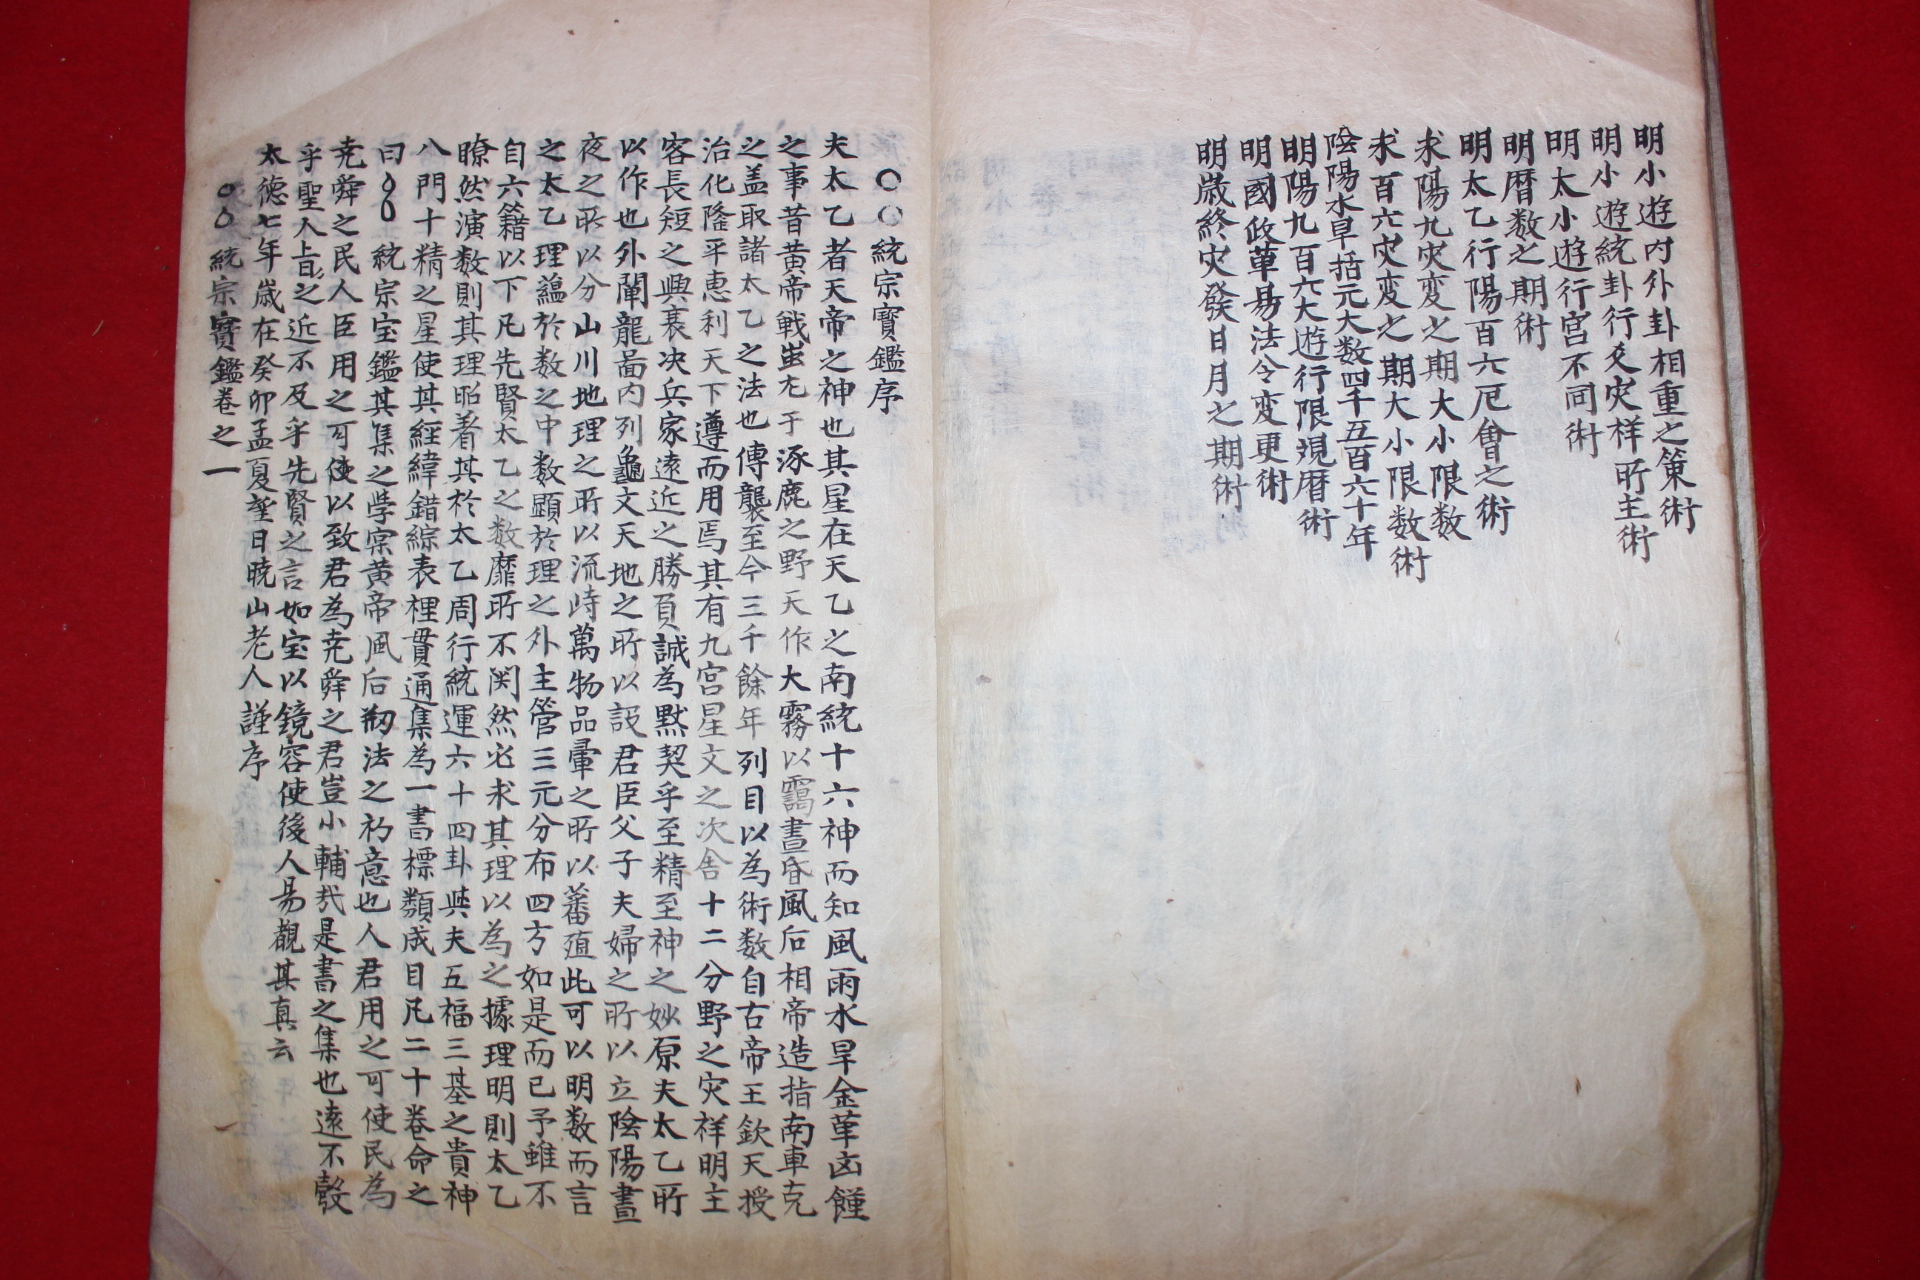 明小遊内外卦相重之策術
明小遊統卦行爻灾祥所主術
明太小遊行宮不同術
明曆数之期術
明太乙行陽百六厄會之術
求陽九灾変之期大小限数
求百六灾变之期大小限数術
陰陽水旱括元大数四千五百六十年
明陽九百百六大遊行限規曆術
明國政革易法令変更術
明歲終灾發日月之期術
〇〇統宗寶鑑序
夫太乙者天帝之神也其星在天乙之南統十六神而知風雨水旱金革凶饉
之事昔黄帝戰蚩尤于涿鹿之野天作大霧以靄晝昏風后相帝造指南車克
之盖取諸太乙之法也傳襲至今三千餘年列目以為術数自古帝王欽天授
治化隆平恵利天下遵而用焉其有九宮星文之次舍十二分野之灾祥明主
客長短之興衰决兵家遠近之勝負誠為黙契乎至精至神之妙原夫太乙所
以作也外闡龍啚内列龜文天地之所以設君臣父子夫婦之所以立陰陽晝
夜之所以分山川地理之所以流峙萬物品彙之所以蕃殖此可以明数而言
之太乙理蕴於数之中数顯於理之外主管三元分布四方如是而已予雖不
自六籍以下凡先賢太乙之数靡所不関然必求其理以為之據理明則太乙
瞭然演数則其理昭着其於太乙周行統運六十四卦與夫五福三基之貴神
八門十精之星使其經緯錯綜表裡貫通集為一書標類成目凡二十卷命之
曰〇〇統宗宝鑑其集之學宗黄帝風后剏法之初意也人君用之可使民為
尭舜之民人臣用之可使以致君為尭舜之君豈小輔㢤是書之集也遠不㱿
乎聖人上旨之近不及乎先賢之言如宝以鏡容使後人易覩其真云
太德七年歲在癸卯孟夏𦣠日暁山老人謹序
〇〇統宗寶鑑卷之一